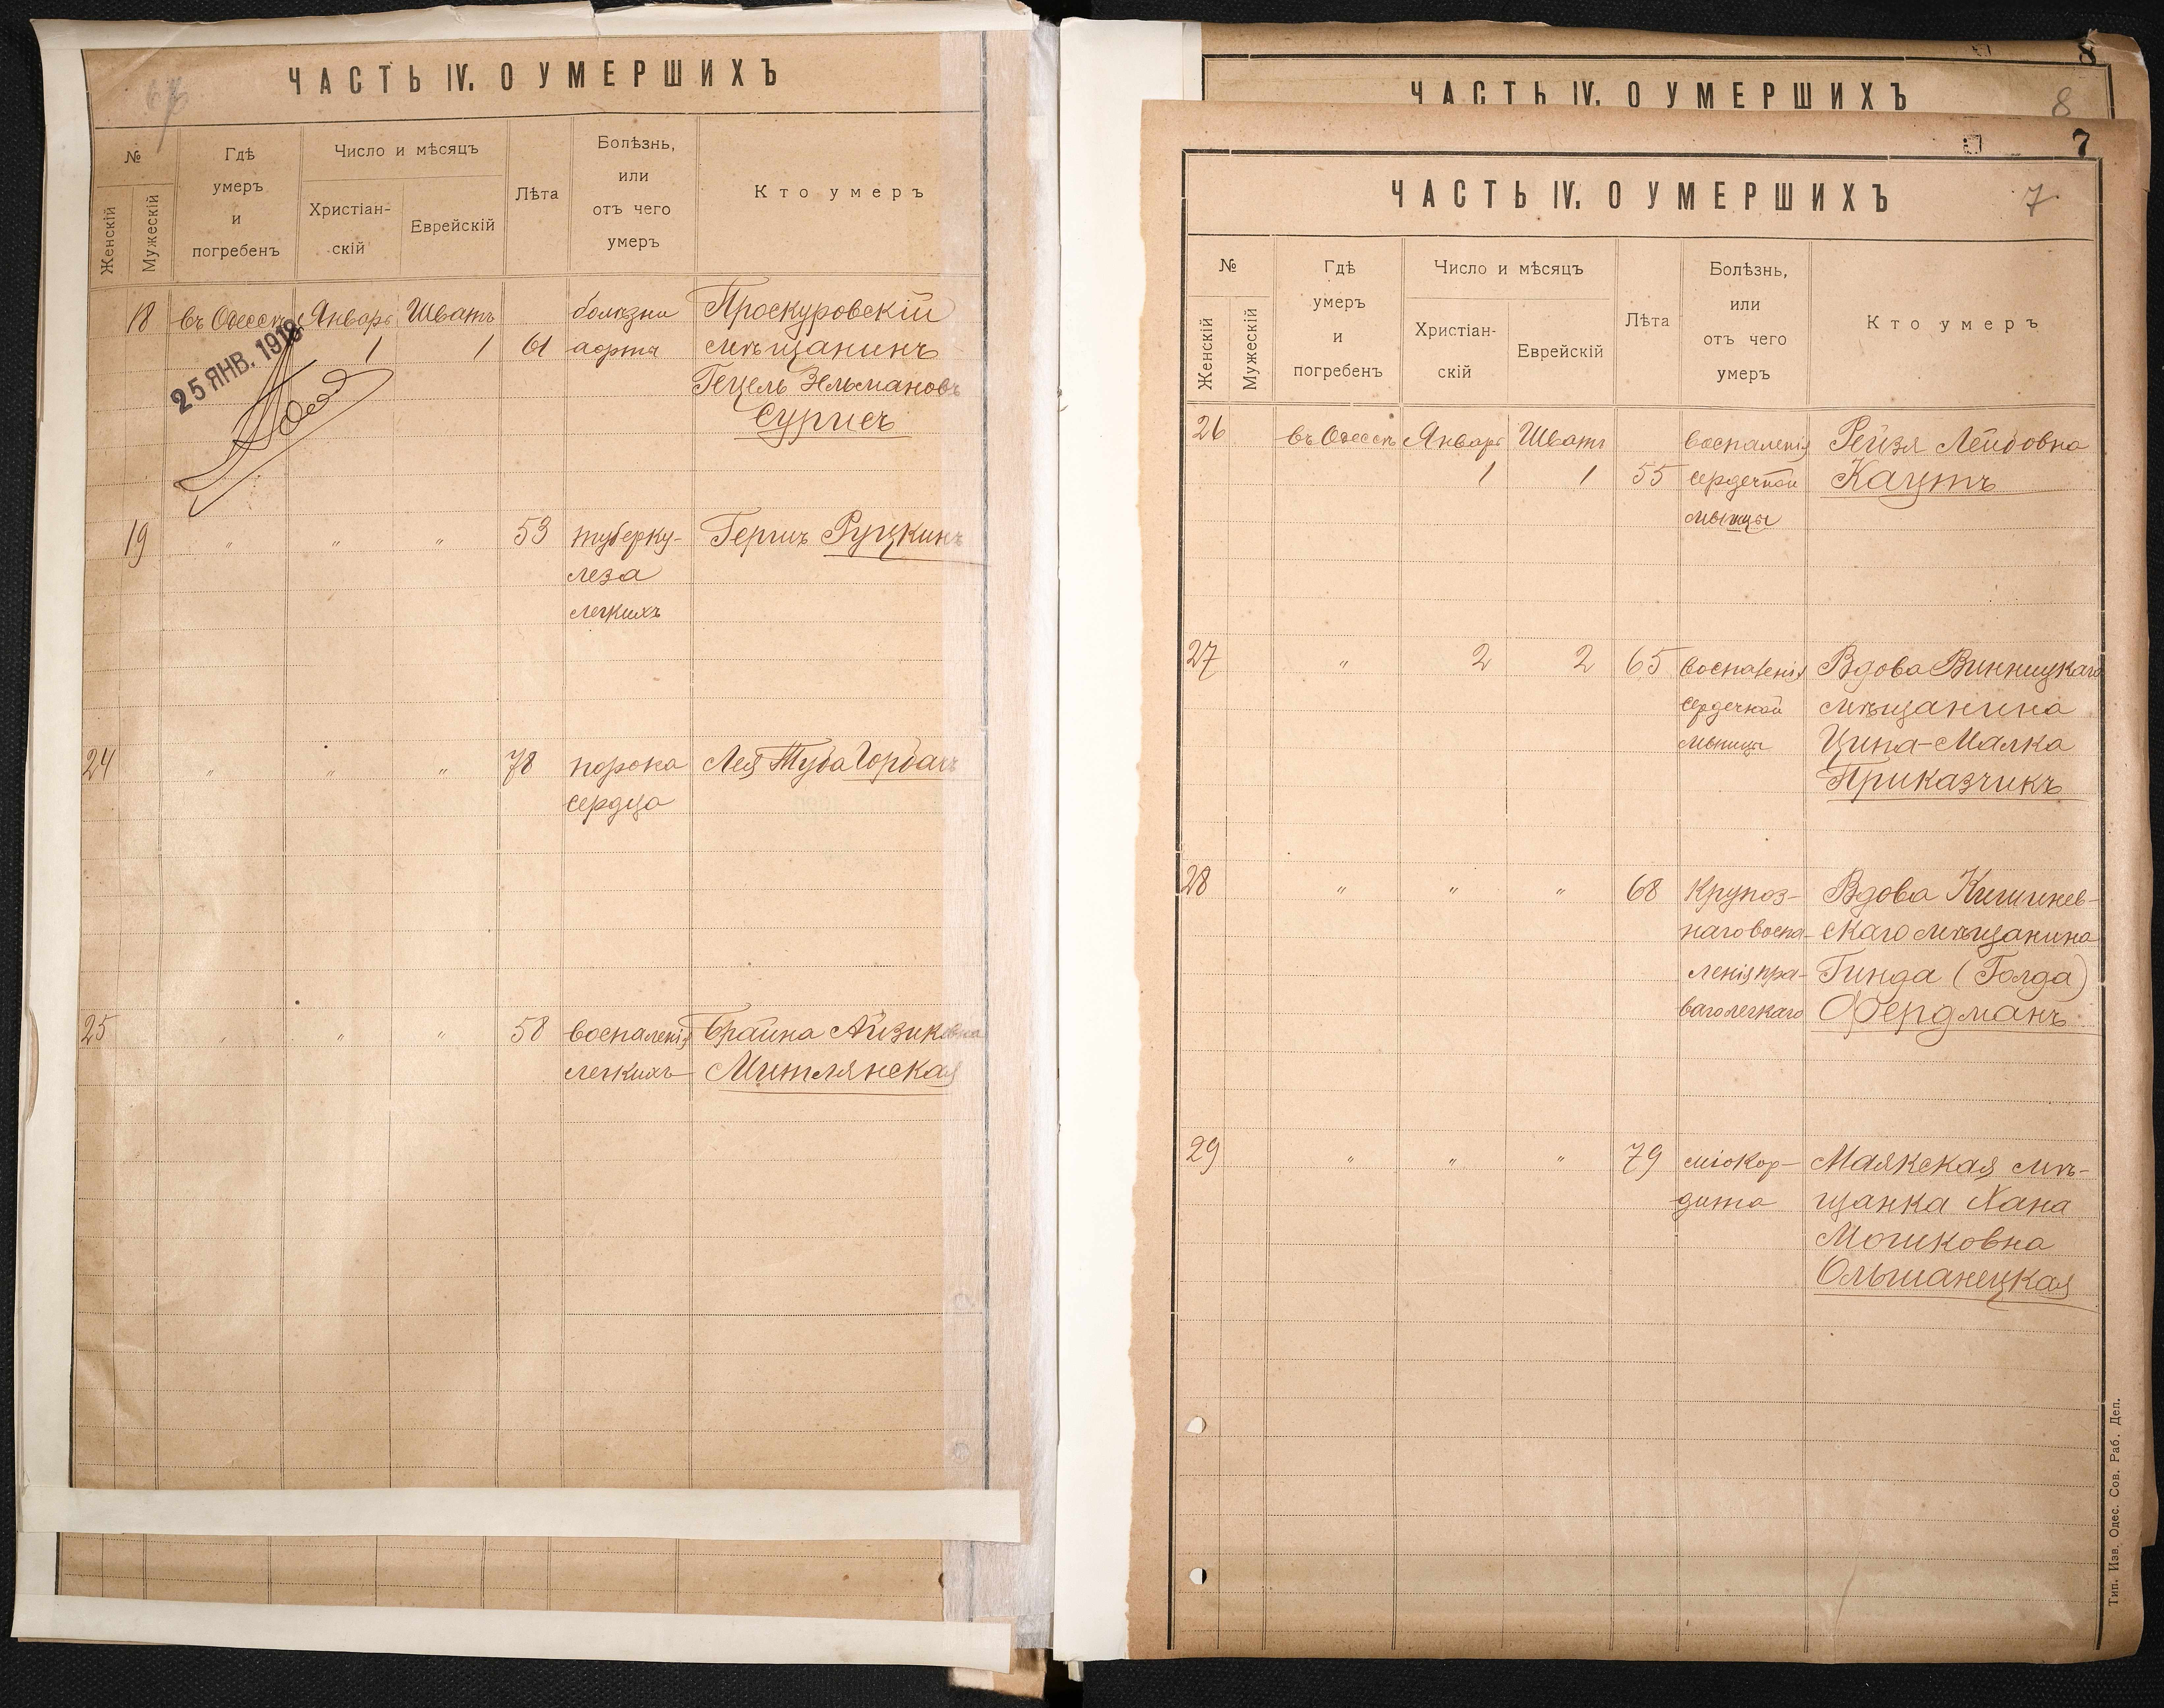 ЧАСТЬ IV. О УМЕРШИХЪ
№
Женскій
Мужескій
Гдѣ
умеръ
и
погребенъ
Число и мѣсяцъ
Христіан-
скій
Еврейскій
Лѣта
Болѣзнь,
или
отъ чего
умеръ
Кто умеръ
18 въ Одессѣ Январь Шватъ болѣзни Проскуровскій
1 1 61 аорты мѣщанинъ
Гецель Зельмановъ
Сурисъ
25 ЯНВ. 1918
19 " " " 53 туберку- Гершъ Руцкинъ
леза
легкихъ
24 " " " 78 порока Лея Туба Горбачъ
сердца
25 " " " 58 воспаленія Брайна Айзиковна
легкихъ Митлянская
8
ЧАСТЬ IV. О УМЕРШИХЪ
8
7
ЧАСТЬ IV. О УМЕРШИХЪ
7
№
Женскій
Мужескій
Гдѣ
умеръ
и
погребенъ
Число и мѣсяцъ
Христіан-
скій
Еврейскій
Лѣта
Болѣзнь,
или
отъ чего
умеръ
Кто умеръ
26 въ Одессѣ Январь Шватъ воспаленія Рейзя Лейбовна
1 1 55 сердечной Кацтъ
мышцы
27 " 2 2 65 воспаленія Вдова Винницкаго
сердечной мѣщанина
мышцы Ципа-Малка
Приказчикъ
28 " " " 68 крупоз- Вдова Кишинев-
наго воспа- скаго мѣщанина
ленія пра- Гинда (Голда)
ваго легкаго Фердманъ
29 " " " 79 міокар- Маякская мѣ-
дита щанка Хана
Мошковна
Ольшанецкая
Тип. Изв. Одес. Сов. Раб. Деп.